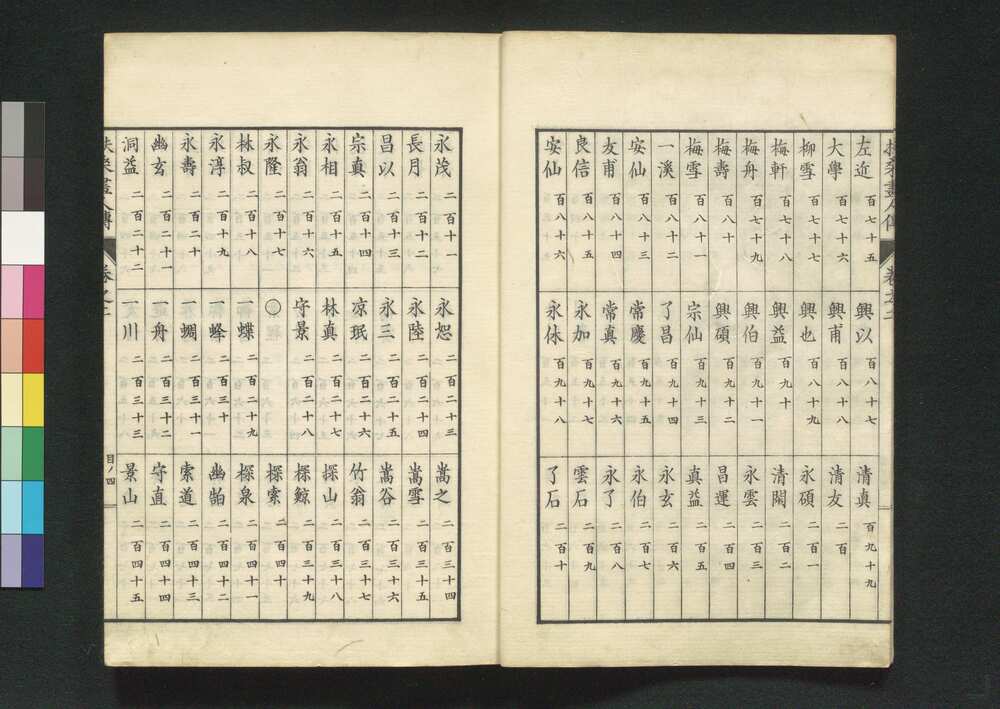 左近 百七十五
大學 百七十六
柳雪 百七十七
梅軒 百七十八
梅舟 百七十九
梅壽 百八十
梅雪 百八十一
一溪 百八十二
安仙 百八十三
友甫 百八十四
良信 百八十五
安仙 百八十六
興以 百八十七
興甫 百八十八
興也 百八十九
興益 百九十
興伯 百九十一
興碩 百九十二
宗仙 百九十三
了昌 百九十四
常慶 百九十五
常真 百九十六
永加 百九十七
永休 百九十八
清真 百九十九
清友 二百
永碩 二百一
清閑 二百二
永雲 二百三
昌運 二百四
真益 二百五
永玄 二百六
永伯 二百七
永了 二百八
雲石 二百九
了石 二百十
永茂 二百十一
長月 二百十二
昌以 二百十三
宗真 二百十四
永相 二百十五
永翁 二百十六
永隆 二百十七
林叔 二百十八
永淳 二百十九
永壽 二百二十
幽玄 二百二十一
洞益 二百二十二
永恕 二百二十三
永陸 二百二十四
永三 二百二十五
凉珉 二百二十六
林真 二百二十七
守景 二百二十八
〇
一蝶 二百二十九
一蜂 二百三十
一蜩 二百三十一
一舟 二百三十二
一川 二百三十三
嵩之 二百三十四
嵩雪 二百三十五
嵩谷 二百三十六
竹翁 二百三十七
探山 二百三十八
探鯨 二百三十九
探索 二百四十
探泉 二百四十一
幽皉 二百四十二
索道 二百四十三
守直 二百四十四
景山 二百四十五
扶桑畫人傳 卷之二
目ノ四